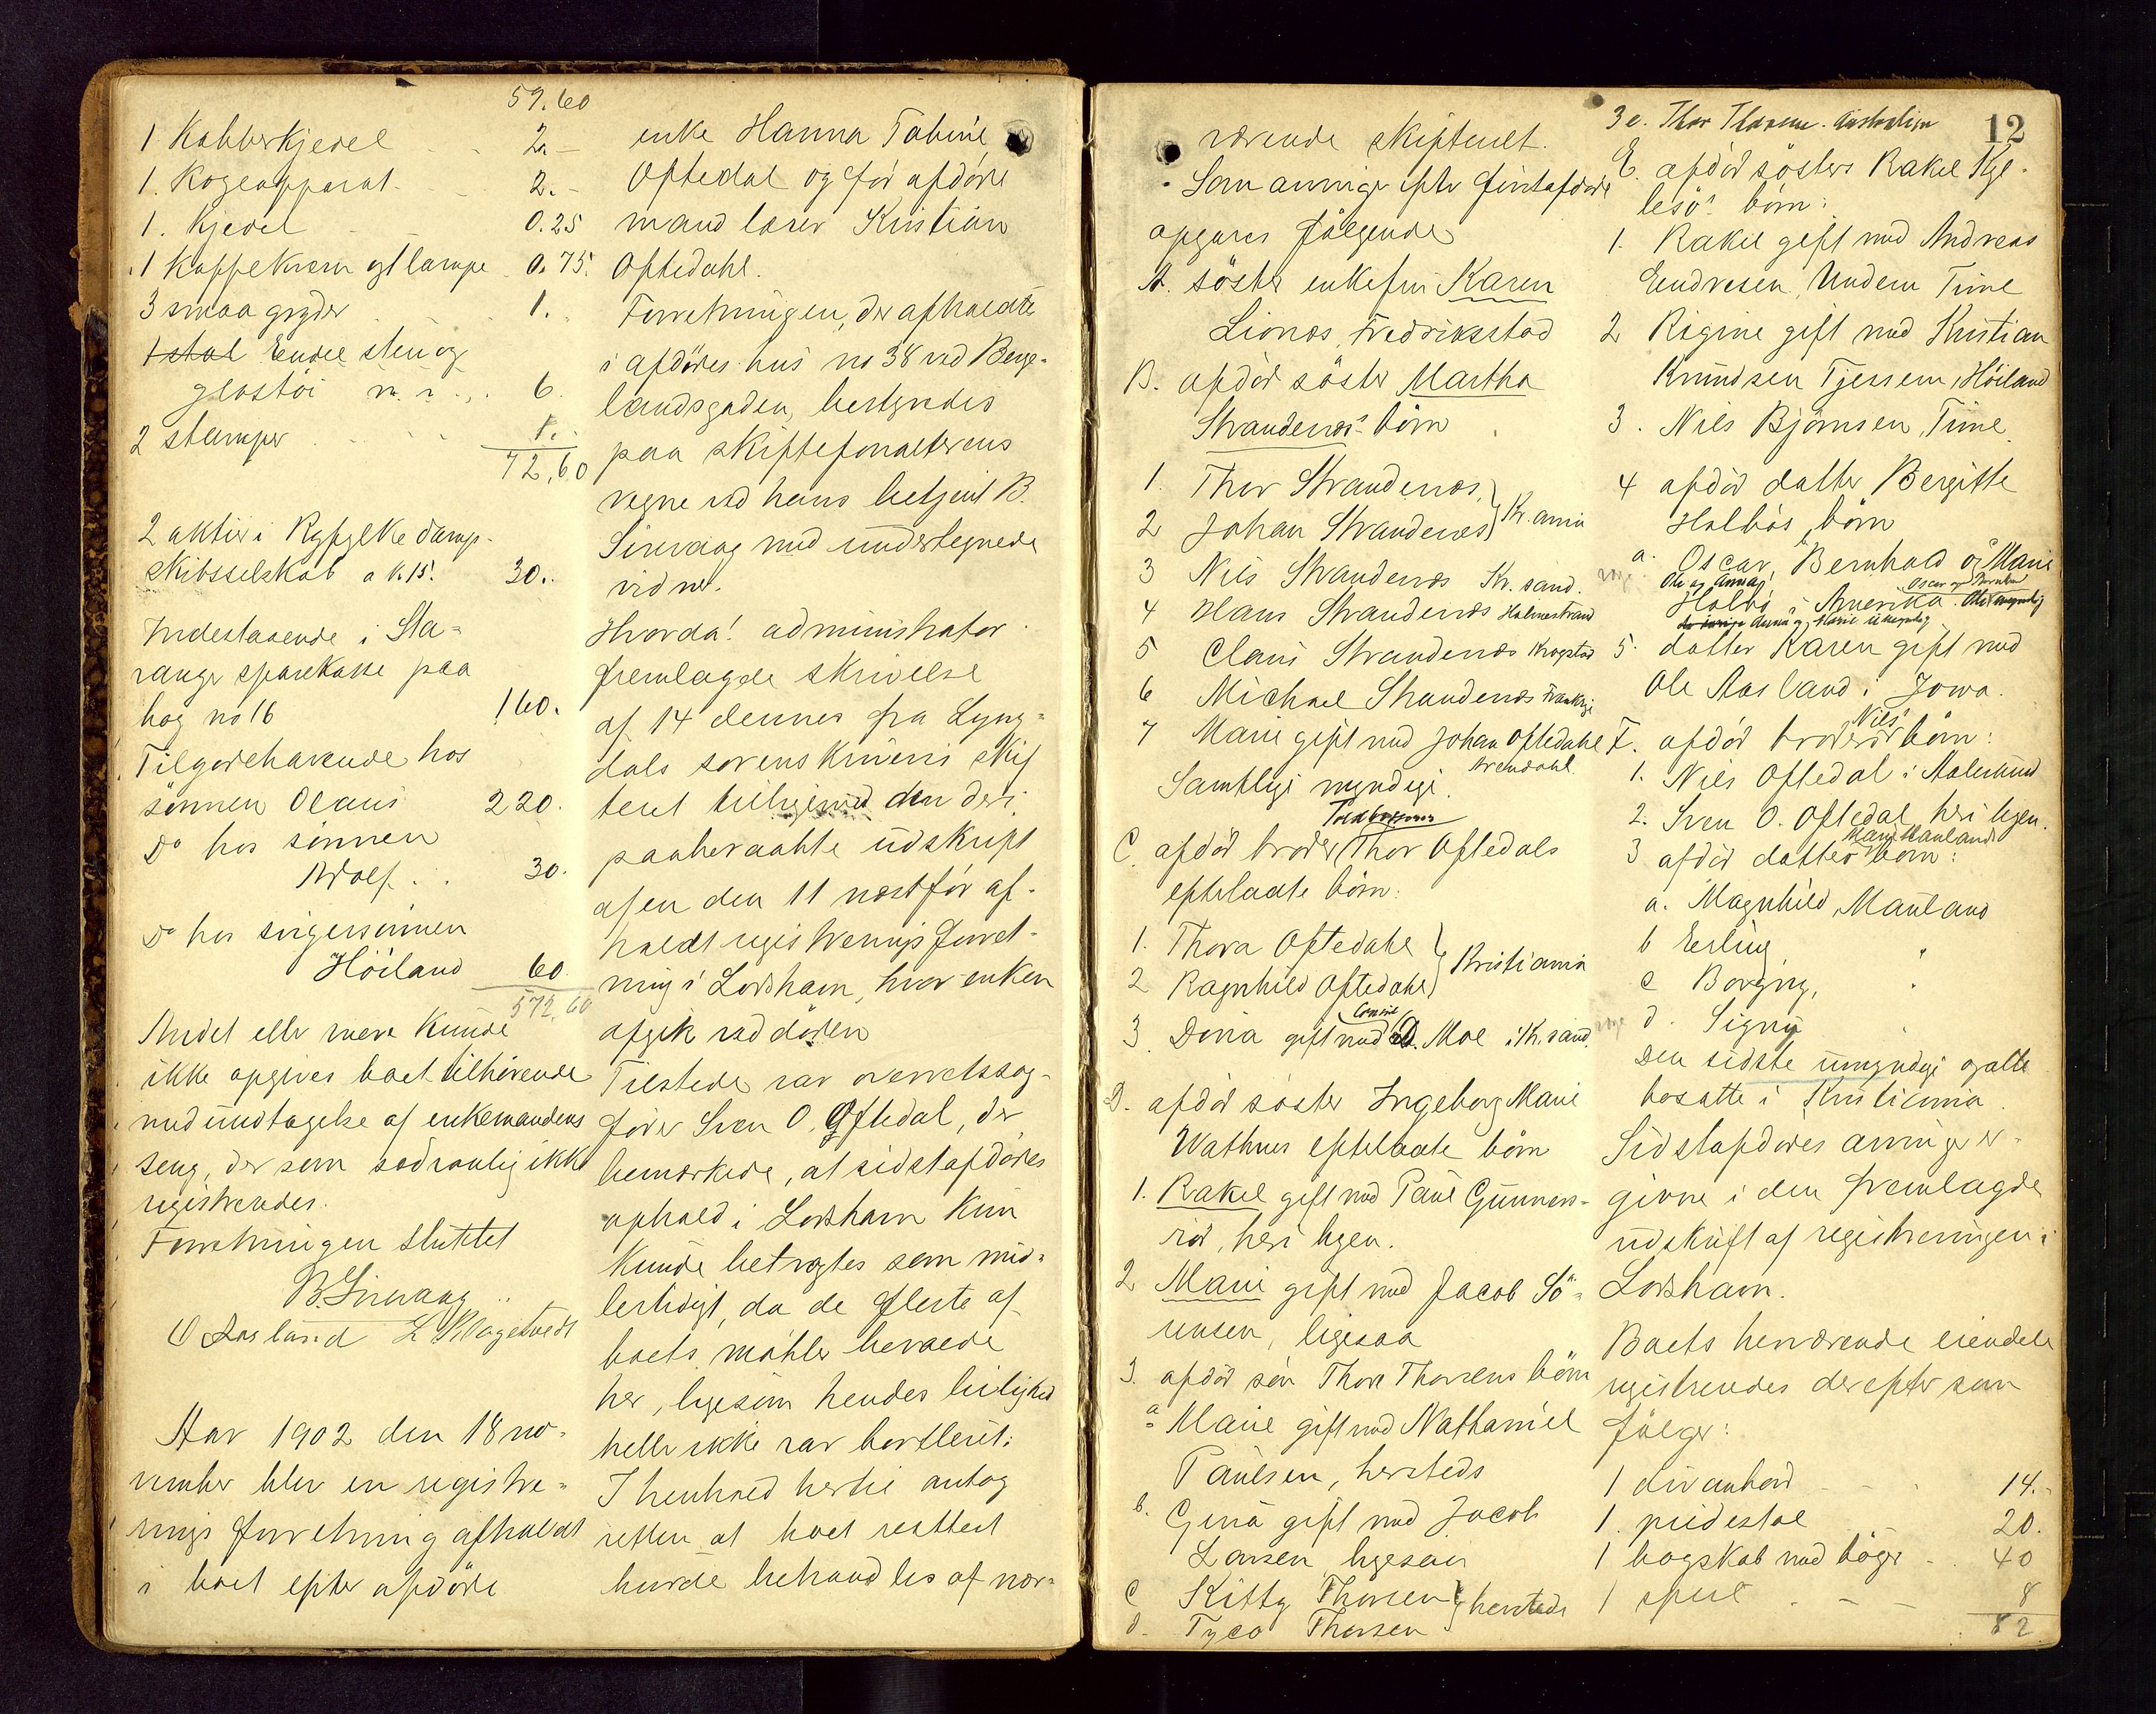 59.60
1 Kobberkjedel - - 2.-
1. Kogeapparat - - 2.-
1. Kjedel - - 0.25
1 Kaffekværn og 1 lampe - 0.75.
3 smaa gryder 1.
1 stol Endel sten og
glastöi m. v. 6.
2 stamper 1.
72,60
2 aktier i Ryfylke damp-
skibsselskab a k. 15. 30.
Indestaaende i Sta-
vanger sparekasse paa
bog no 16 160.
Tilgodehavende hos
sönnen Olaus 220.
Do hos sönnen
Adolf 30.
Do hos svigersönnen
Höiland 60.
572,60
Andet eller mere kunde
ikke opgives boet tilhörende
med undtagelse af enkemandens
seng, der som sedvanlig ikke
registreredes.
Forretningen sluttet
B. Sirevaag
O Aasland L. Hagetvedt
Aar 1902 den 18 no-
vember blev en registre-
rings forretning afholdt
i boet efter afdöde
enke Hanna Tabine
Oftedal og för afdöde
mand lærer Kristian
Oftedahl.
Forretningen, der afholdtes
i afdödes hus no 38 ved Berge-
landsgaden, bestyrdes
paa skifteforvalterens
vegne ved hans betjent B.
Sirevaag med undertegnede
vidner.
Hvorda! administrator
fremlagde skrivelse
af 14 dennes fra Lyng-
dals sorenskriveris skif
teret tilligemed den deri
paaberaabte udskrift
af en den 11 næstför af-
holdt registrerings forret-
ning i Lodshavn, hvor enken
afgik ved döden
Tilstede var overretssag-
förer Sven O. Oftedal, der
bemærkede, at sidstafdödes
ophold i Lodshavn kun
kunde betragtes som mid-
lertidigt, da de fleste af
boets möbler beroede
her, ligesom hendes leilighed
heller ikke var bortleiet.
I henhold hertil antog
retten at boet rettest
burde behandles af nær-
12
værende skifteret.
Som arvinger efter förstafdöde
opgaves fölgende
A. söster enkefru Karen
Lionæs, Fredrikstad
B. afdöd söster Martha
Strandenæs' börn
1. Thor Strandenæs,
2 Johan Strandenæs } Kr.ania
3 Nils Strandenæs Kr.sand.
4 Hans Strandenæs Holmestrand
5 Claus Strandenæs Kragstad
6 Michael Strandenæs Frankrige
7 Marie gift med Johan Oftedahl
Arendahl.
Samtlige myndige.
Toldkasserer
C. afdöd broder Thor Oftedals
efterladte börn:
1. Thora Oftedahl
2 Ragnhild Oftedahl } Kristiania
3. Dina gift med Consul D. Moe i Kr.sand.
D. afdöd söster Ingeborg Marie
Wathnes efterladte börn
1. Rakel gift med Paul Gunners-
röd, her i byen.
2 Marie gift med Jacob Sö-
rensen, ligesaa
3. afdöd sön Thore Thorsens börn
a Marie gift med Nathaniel
Paulsen, hersteds
b. Gina gift med Jacob
Larsen ligesaa
c Kitty Thorsen
d. Tyco Thorsen } hersteds
3 e. Thor Thorsen. Australien
E. afdöd sösters Rakel Kyl-
lesö's börn:
1. Rakel gift med Andreas
Endresen, Undem Time
2 Regine gift med Kristian
Knudsen Tjessem, Höiland
3. Nils Björnsen, Time
4 afdöd datter Bergitte
Holbös börn
a. Oscar, Bernhard og Marie
Ole og Anna,
Holbö i Amerika. Oscar og Bernhard
Anna og Marie umyndig
5. datter Karen gift med
Ole Aasland i Jowa.
F. afdöd broder Nils' börn:
1. Nils Oftedal i Aalesund
2. Sven O. Oftedal her i byen.
3 afdöd datter Mauland börn:
a. Magnhild Mauland
b Erling "
c Borgny, "
d. Signy "
Den sidste umyndige og alle
bosatte i Kristiania.
Sidstafdödes arvinger er
givne i den fremlagde
udskrift af registreringen i
Lodshavn.
Boets herværende eiendele
registreredes derefter som
fölger:
1 divanbord - - 14.-
1. pidestal 20.
1 bogskab med böger - 40
1 speil - - 8
82